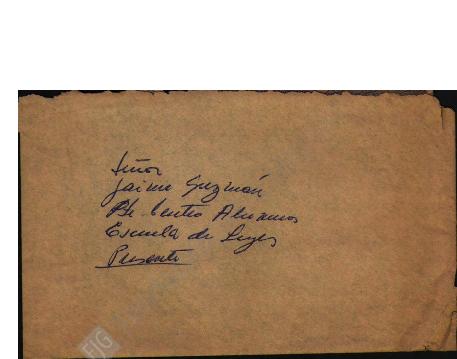 Señor
Jaime Guzmán
Pte. Centro Alumnos
Escuela de Leyes
Presente
FJG